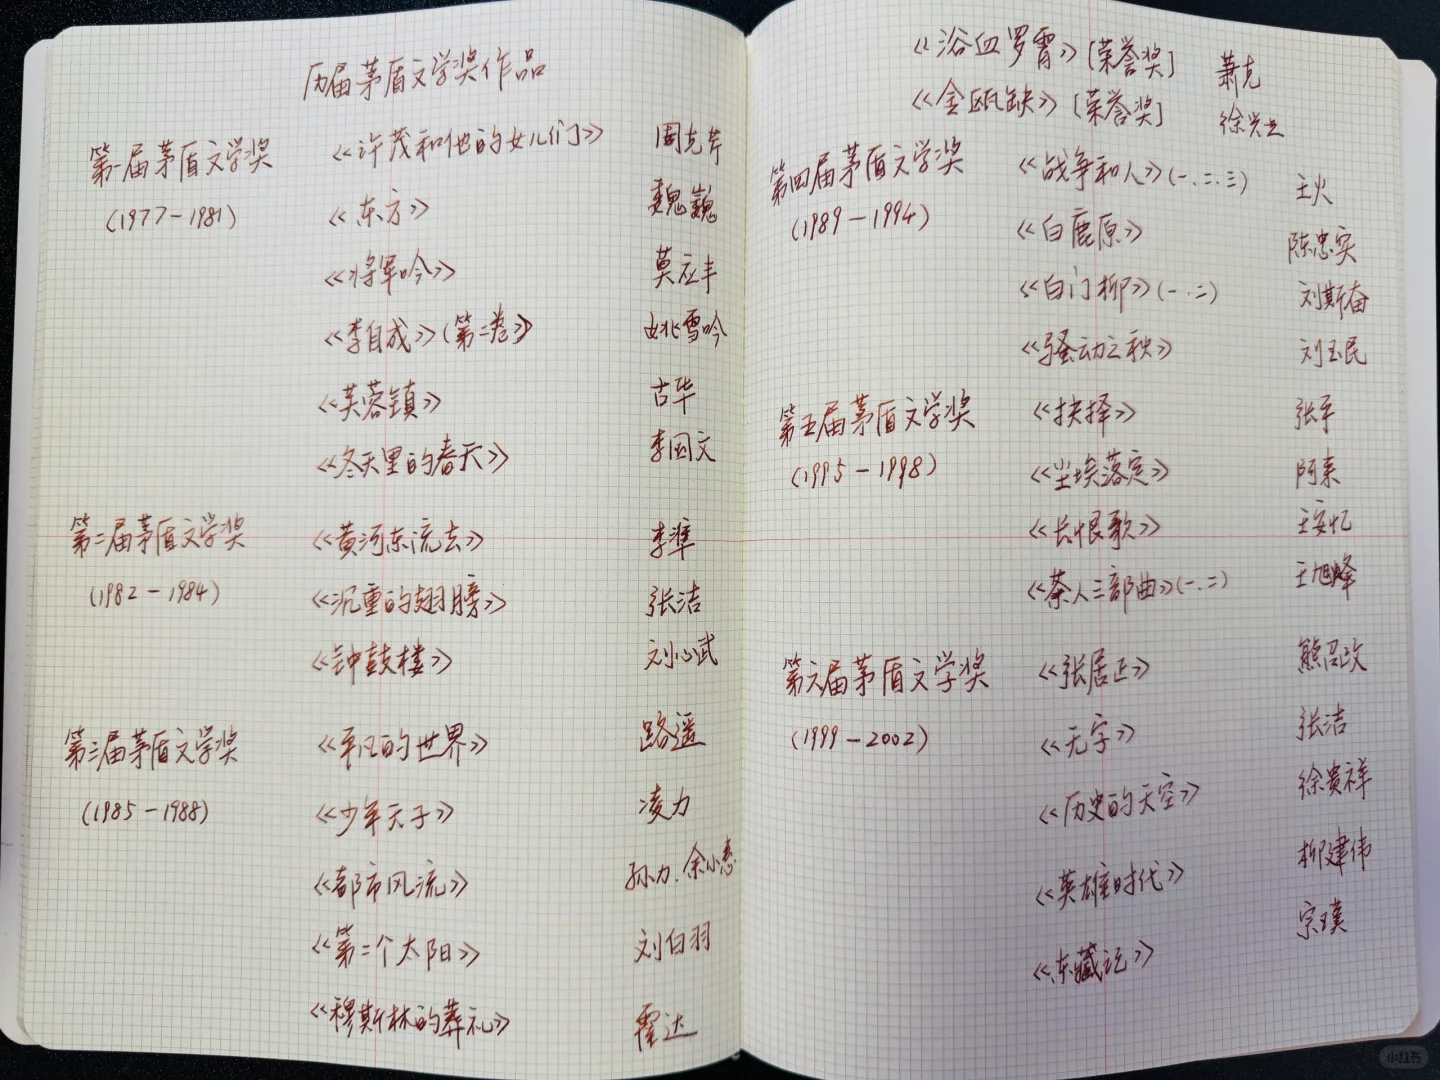 历届茅盾文学奖作品
第一届茅盾文学奖 《许茂和他的女儿们》 周克芹
(1977-1981) 《东方》 魏巍
《将军吟》 莫应丰
《李自成》(第二卷》 姚雪吟
《芙蓉镇》 古华
《冬天里的春天》 李国文
第二届茅盾文学奖 《黄河东流去》 李準
(1982-1984) 《沉重的翅膀》 张洁
《钟鼓楼》 刘心武
第三届茅盾文学奖 《平凡的世界》 路遥
(1985-1988) 《少年天子》 凌力
《都市风流》 孙力.余小惠
《第二个太阳》 刘白羽
《穆斯林的葬礼》 霍达
《浴血罗霄》[荣誉奖] 萧克
《金瓯缺》[荣誉奖] 徐兴业
第四届茅盾文学奖 《战争和人》(一.二.三) 王火
(1989-1994) 《白鹿原》 陈忠实
《白门柳》(一.二) 刘斯奋
《骚动之秧》 刘玉民
第五届茅盾文学奖 《抉择》 张平
(1995-1998) 《尘埃落定》 阿来
《长恨歌》 王安忆
《茶人三部曲》(一.二) 王旭峰
第六届茅盾文学奖 《张居正》 熊召政
(1999-2002) 《无字》 张洁
《历史的天空》 徐贵祥
《英雄时代》 柳建伟
《东藏记》 宗璞
小红书